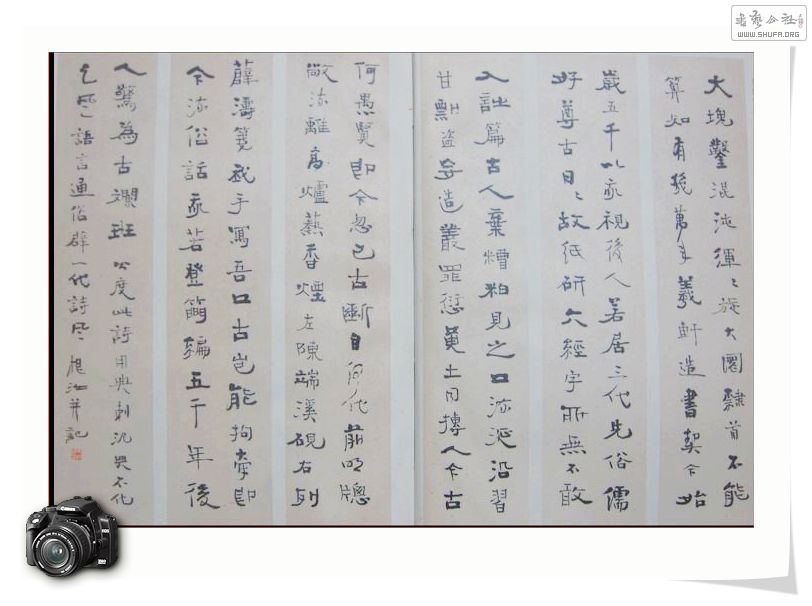 書藝公社
WWW.SHUFA.ORG
大塊鑿混沌渾〻旋大圜隸首不能
算知有幾萬年羲軒造書契今始
歲五千以我視後人若居三代先俗儒
好尊古日〻故紙研六經字所無不敢
入詩篇古人棄糟粕見之口流涎沿習
甘剽盜妄造叢罪愆黃土同摶人今古
何愚賢即今忽已古斷自何代前明牕
敞流離高爐爇香煙左陳端溪硯右列
薛濤箋我手寫吾口古豈能拘牽即
今流俗話我若登簡編五千年後
人驚為古斕班 公度此詩用典 不化
之風語言通俗辟一代詩風 并記
Canon